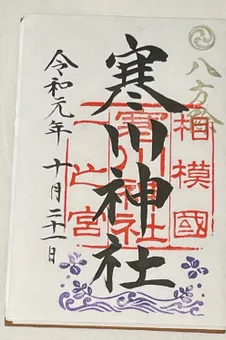 八方除
相模國
寒川神社
寒川神社
一之宮
令和元年十月二十一日